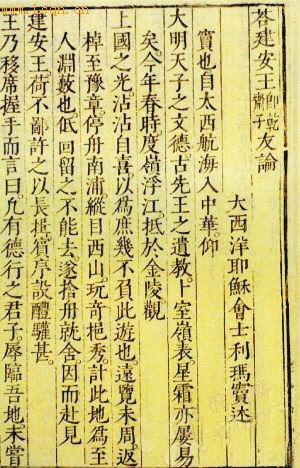 荅建安王即乾齋子友論
大西洋耶穌會士利瑪竇述
竇也自太西航海入中華仰
大明天子之文德古先王之遺教卜室嶺表星霜亦屢易
矣今年春時度嶺浮江抵於金陵觀
上國之光沾沾自喜以爲庶幾不負此遊也遠覽未周返
棹至豫章停舟南浦縱目西山玩奇挹秀計此地爲至
人淵藪也低回留之不能去遂捨舟就舍因而赴見
建安王荷不鄙許之以長揖賓序設醴驩甚
王乃移席握手而言曰凡有德行之君子辱臨吾地未嘗